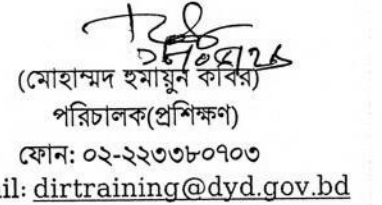 (মোহাম্মদ হুমায়ুন কবির)
পরিচালক(প্রশিক্ষণ)
ফোন: ০২-২২৩৩৮০৭০৩
il: dirtraining@dyd.gov.bd